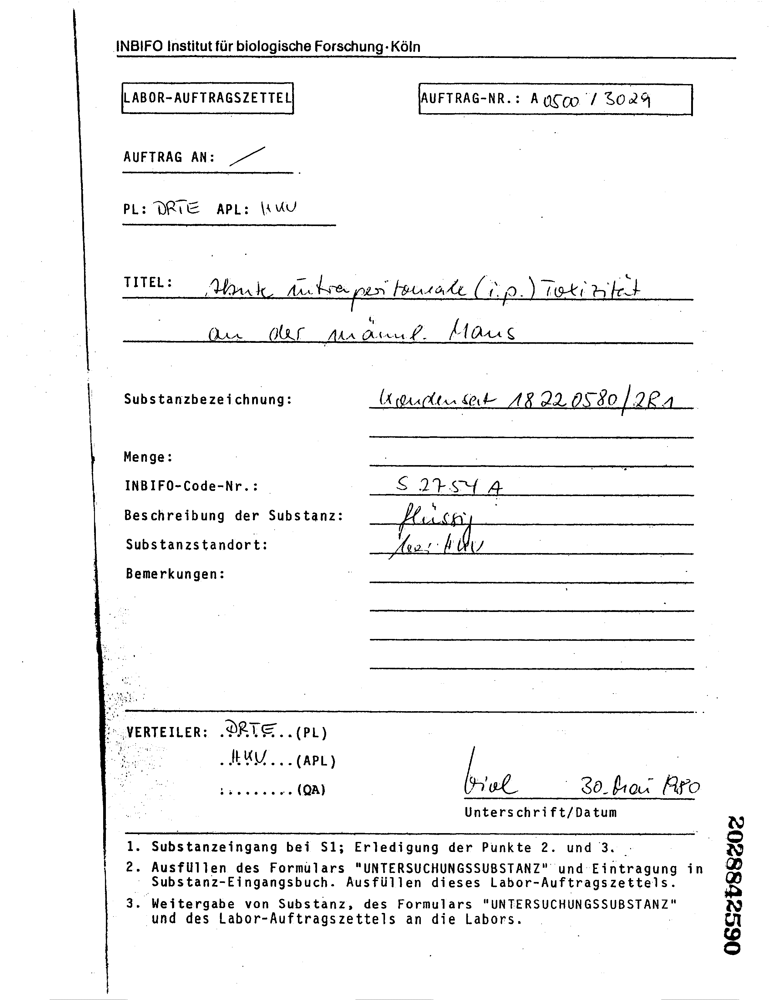 INBIFO Institut für biologische Forschung · Köln
LABOR-AUFTRAGSZETTEL
AUFTRAG-NR.: A 0500 / 3029
AUFTRAG AN: /
PL: DRTE APL: HUV
TITEL: Akute intraperitoneale (i.p.) Toxizität
an der männl. Maus
Substanzbezeichnung: Kondensat 18220580/2R1
Menge:
INBIFO-Code-Nr.: S 2754 A
Beschreibung der Substanz: flüssig
Substanzstandort: bei HUV
Bemerkungen:
VERTEILER: .DRTE...(PL)
.HUV....(APL)
.........(QA)
30. Mai 1980
Unterschrift/Datum
1. Substanzeingang bei S1; Erledigung der Punkte 2. und 3.
2. Ausfüllen des Formulars "UNTERSUCHUNGSSUBSTANZ" und Eintragung in
Substanz-Eingangsbuch. Ausfüllen dieses Labor-Auftragszettels.
3. Weitergabe von Substanz, des Formulars "UNTERSUCHUNGSSUBSTANZ"
und des Labor-Auftragszettels an die Labors.
2028842590